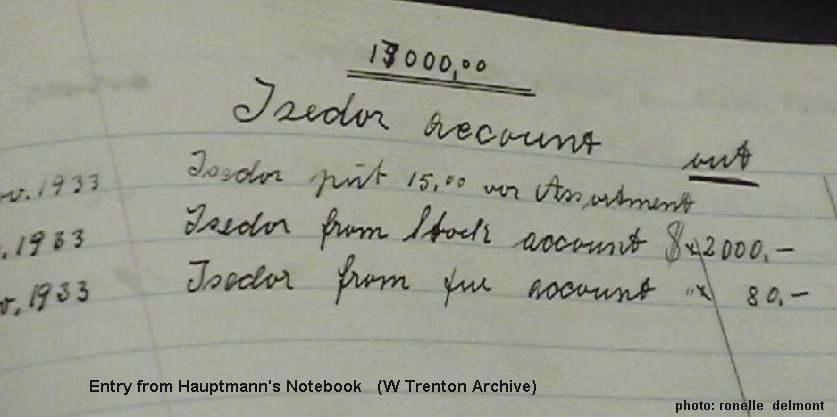 13000,00
Isedor account
out
ov. 1933 Isedor put 15,00 vor Assortment
. 1933 Isedor from Stock account $ 2000,-
v. 1933 Isedor from fur account " 80,-
Entry from Hauptmann's Notebook (W Trenton Archive)
photo: ronelle delmont